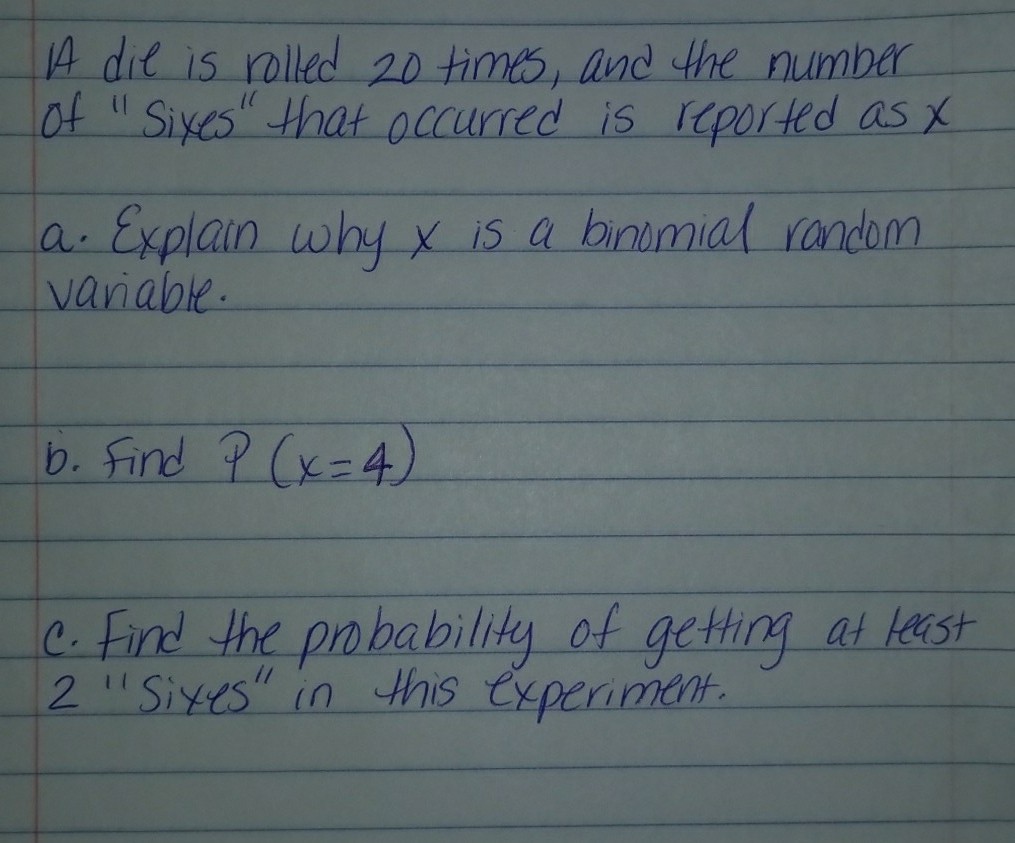 A die is rolled 20 times, and the number
of "Sixes" that occurred is reported as x
a. Explain why x is a binomial random
variable.
b. Find P (x=4)
c. Find the probability of getting at least
2 "Sixes" in this experiment.